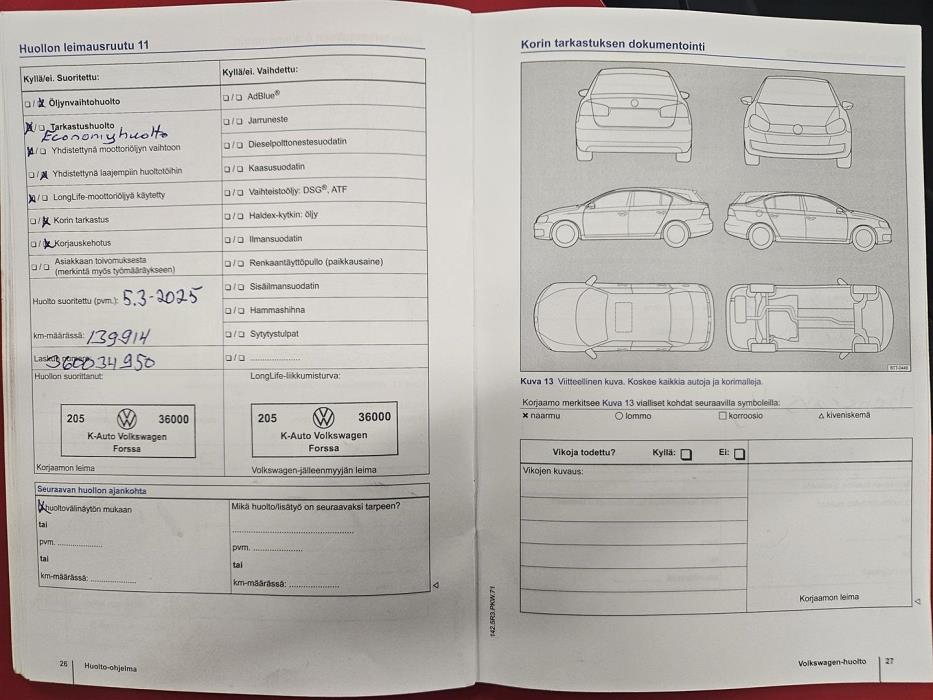 Huollon leimausruutu 11
Kyllä/ei. Suoritettu:
Öljynvaihtohuolto
Tarkastushuolto
Economyhuolto
Yhdistettynä moottoriöljyn vaihtoon
Yhdistettynä laajempiin huoltotöihin
LongLife-moottoriöljyä käytetty
Korin tarkastus
Korjauskehotus
Asiakkaan toivomuksesta
(merkintä myös työmääräykseen)
Huolto suoritettu (pvm.): 5.3-2025
km-määrässä: 139914
360034950
Huollon suorittanut:
205 36000
K-Auto Volkswagen
Forssa
Korjaamon leima
Kyllä/ei. Vaihdettu:
AdBlue®
Jarruneste
Dieselpolttonestesuodatin
Kaasusuodatin
Vaihteistoöljy: DSG®, ATF
Haldex-kytkin: öljy
Ilmansuodatin
Renkaantäyttöpullo (paikkausaine)
Sisäilmansuodatin
Hammashihna
Sytytystulpat
LongLife-liikkumisturva:
205 36000
K-Auto Volkswagen
Forssa
Volkswagen-jälleenmyyjän leima
Seuraavan huollon ajankohta
huoltovälinäytön mukaan
tai
pvm. ................
tai
km-määrässä: ................
Mikä huolto/lisätyö on seuraavaksi tarpeen?
pvm. ................
tai
km-määrässä: ................
26 Huolto-ohjelma
Korin tarkastuksen dokumentointi
Kuva 13 Viitteellinen kuva. Koskee kaikkia autoja ja korimalleja.
Korjaamo merkitsee Kuva 13 vialliset kohdat seuraavilla symboleilla:
naarmu lommo korroosio kiveniskemä
Vikoja todettu? Kyllä: Ei:
Vikojen kuvaus:
Korjaamon leima
142.5R3.PKW.71
Volkswagen-huolto 27